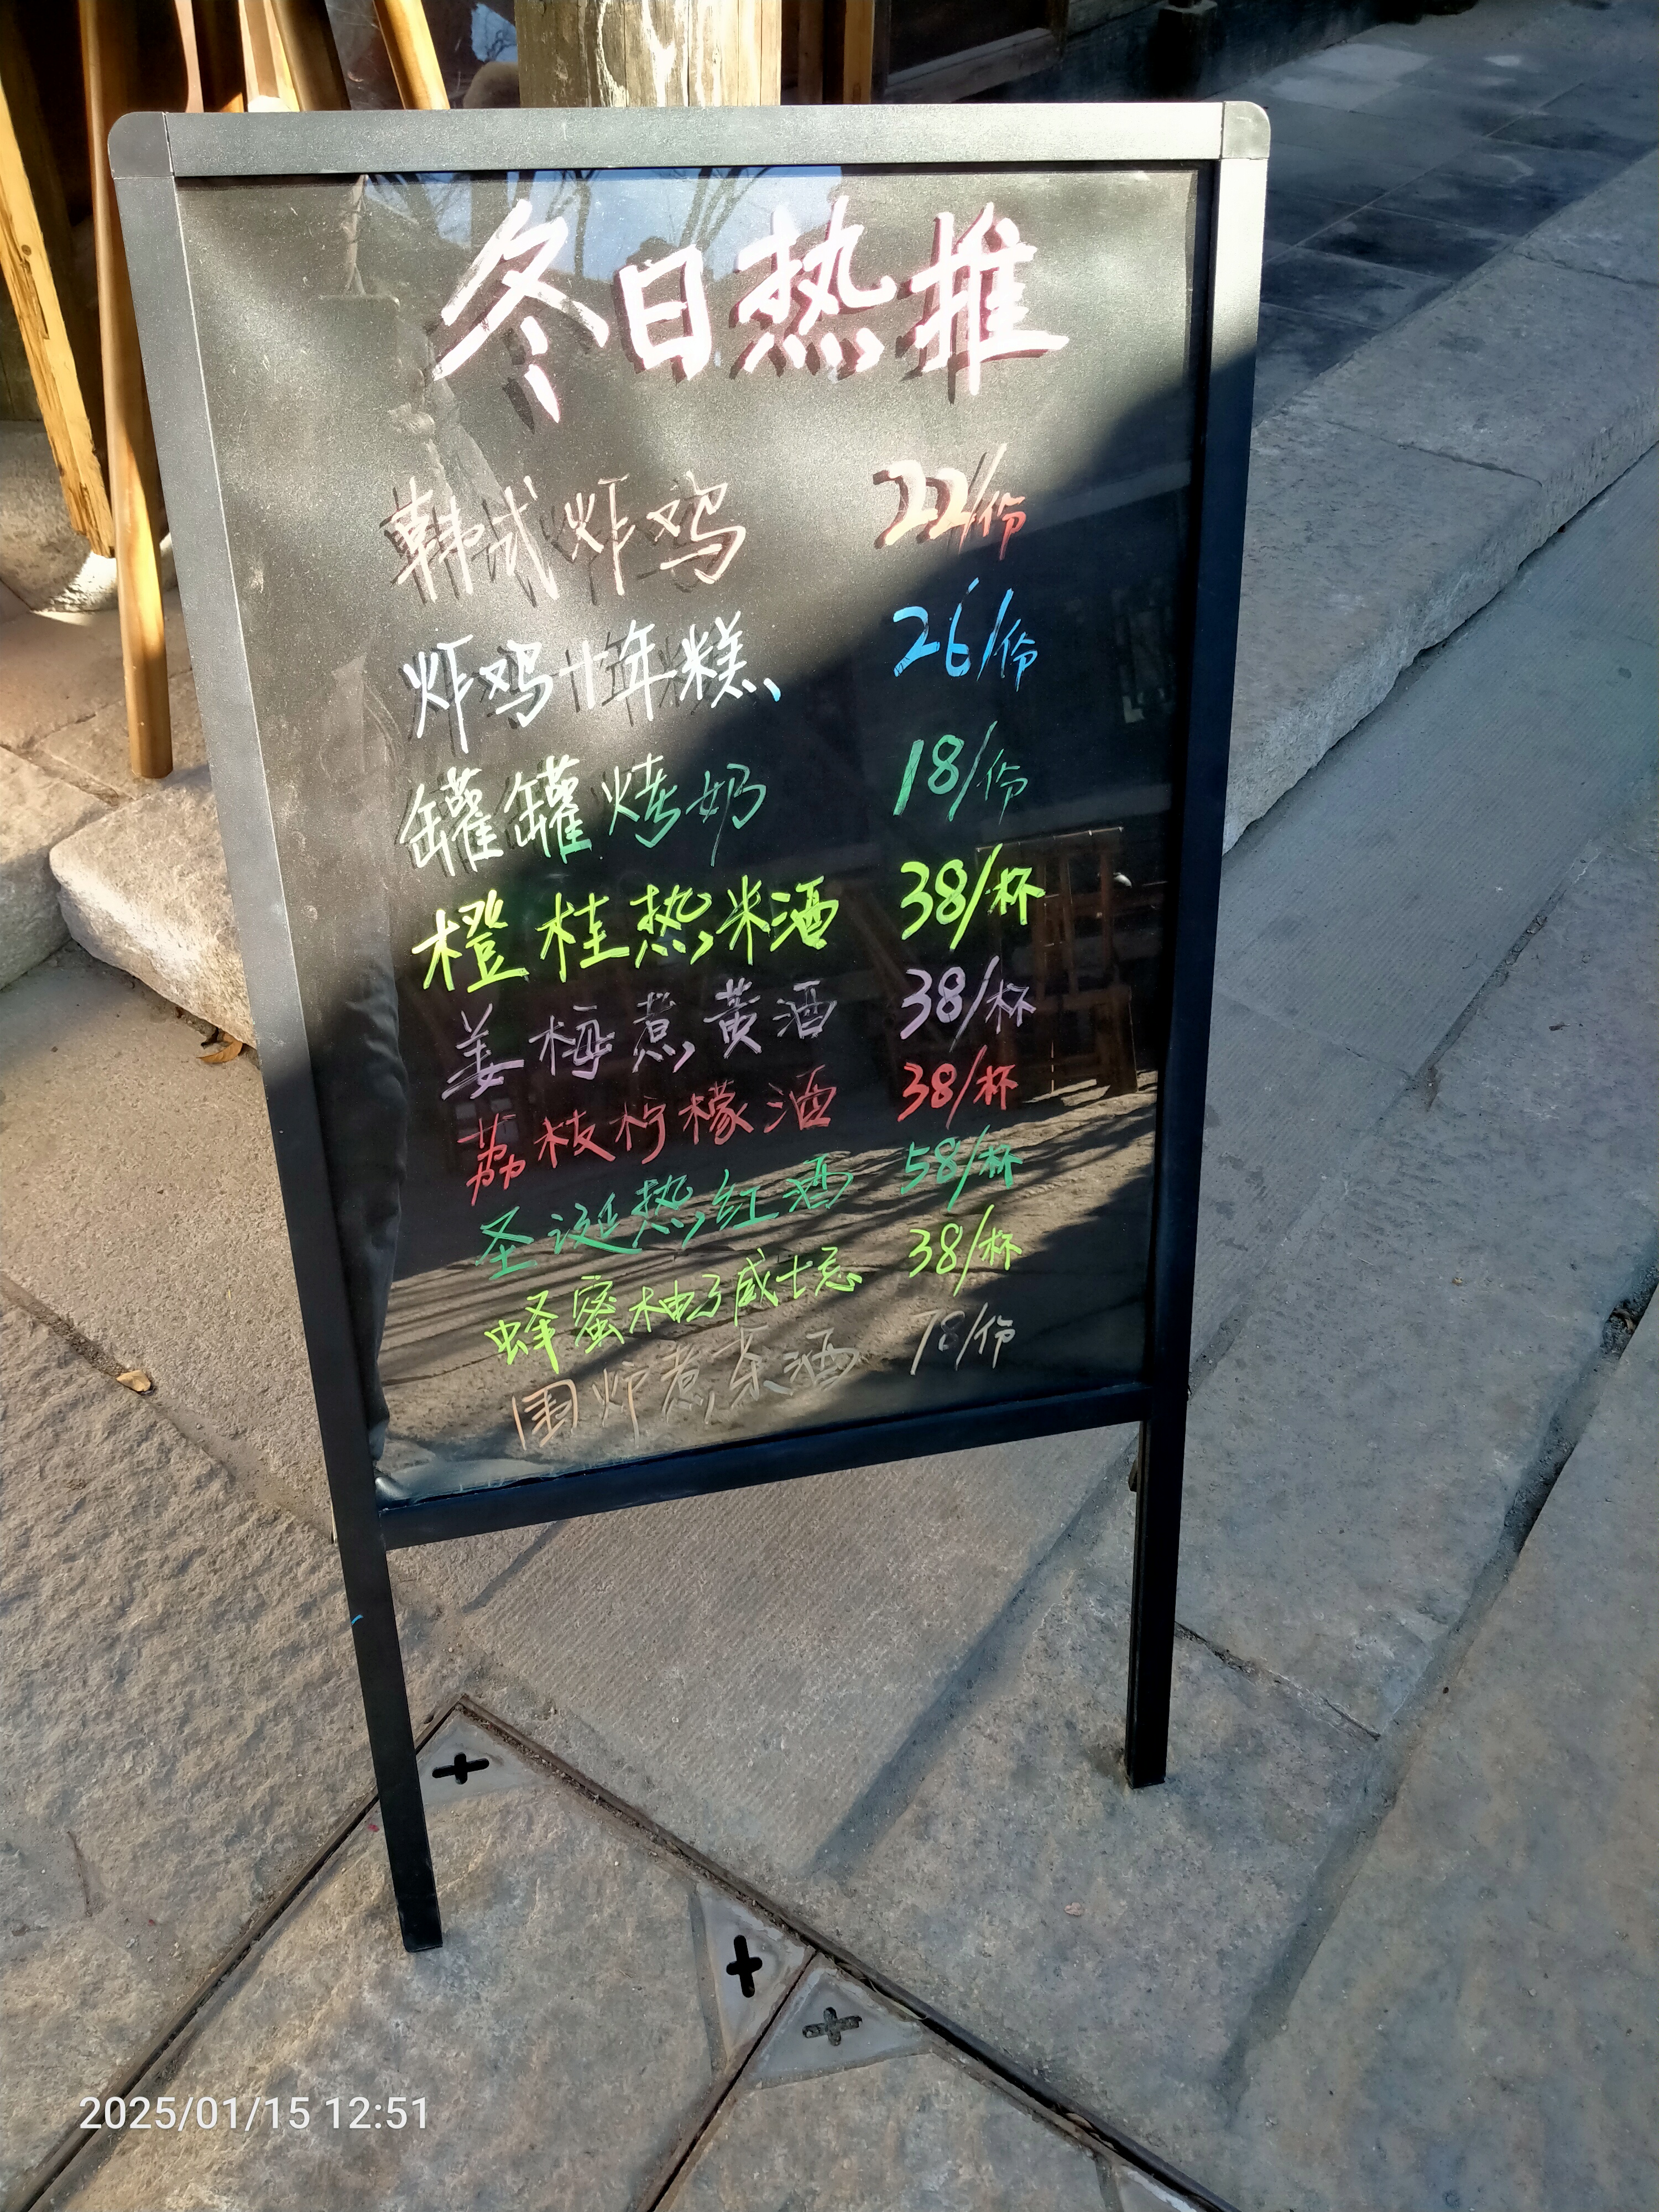 冬日热推
韩式炸鸡 22/份
炸鸡+年糕 26/份
罐罐烤奶 18/份
橙桂热米酒 38/杯
姜梅煮黄酒 38/杯
荔枝柠檬酒 38/杯
圣诞热红酒 58/杯
蜂蜜柚子威士忌 38/杯
围炉煮茶酒 78/份
2025/01/15 12:51